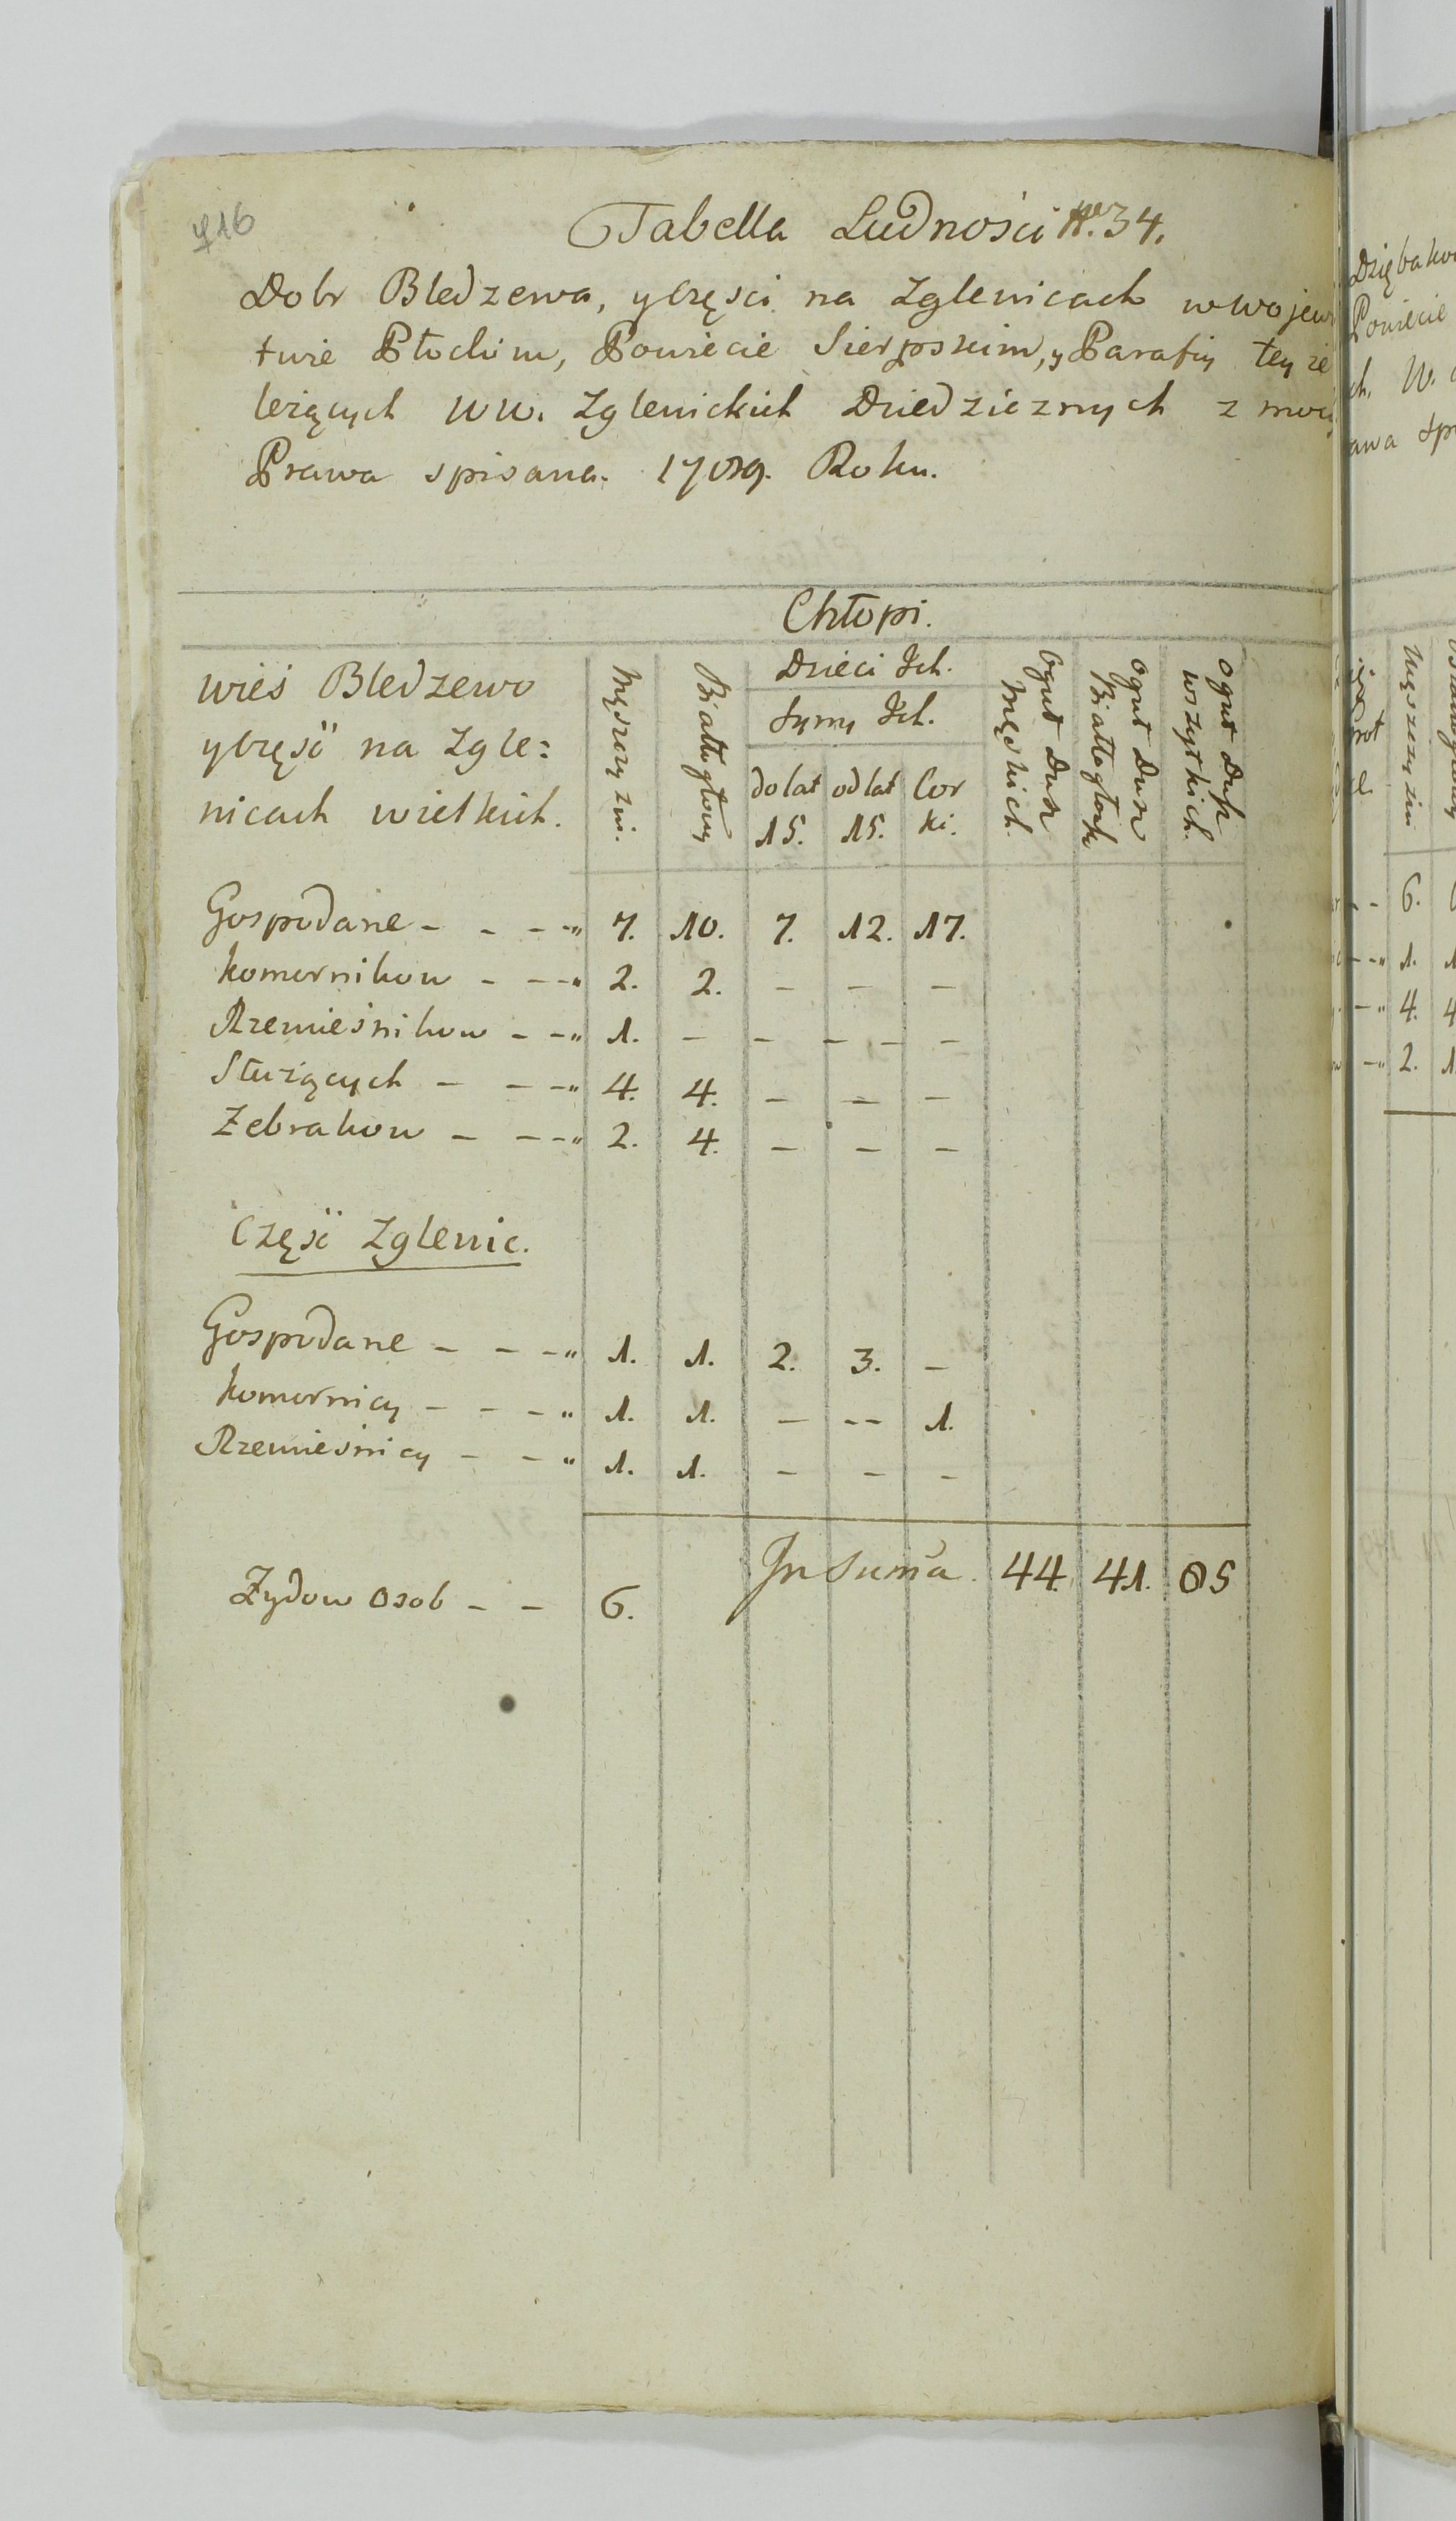 716
Tabella Ludności No. 34.
Dobr Bledzewa, y częsci na Zglenicach w wojew
twie Płockim, Powiecie Sierpskim, y Parafiy teyże
leżących WW. Zglenickich Dziedzicznych z mocy
Prawa spisana. 1789. Roku.
Chłopi.
wieś Bledzewo
y część na Zgle:
nicach wielkich.
Męszczyzni.
Białogłowy
Dzieci Ich.
Synny Ich.
do lat 15.
od lat 15.
Cor ki.
Ogut Dusz Męskich.
Ogut Dusz Białogłosk
Ogut Dusz wszytkich.
Gospodarze - - - „ 7. 10. 7. 12. 17.
komornikow - - - „ 2. 2. - - -
Rzemieśnikow - - „ 1. - - - - -
Służących - - - „ 4. 4. - - -
Żebrakow - - - „ 2. 4. - - -
Część Zglenic.
Gospodarze - - - „ 1. 1. 2. 3. -
komornicy - - - „ 1. 1. - -- 1.
Rzemieśnicy - - „ 1. 1. - - -
In Summa. 44. 41. 85
Żydow Osob - - 6.